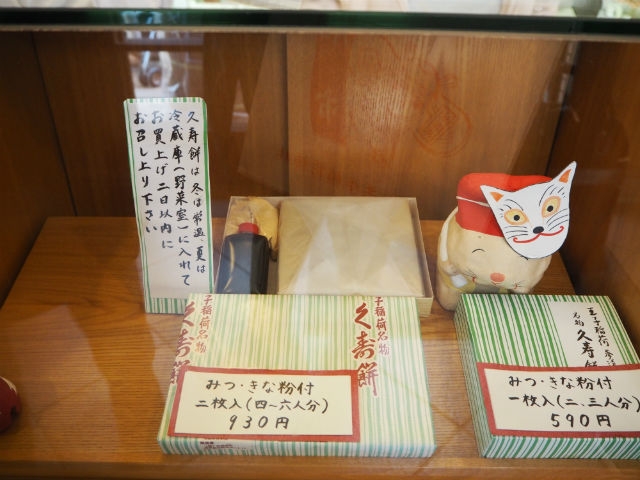 久寿餅は冬は常温、夏は
冷蔵庫(野菜室)に入れて
お買上げ二日以内に
お召し上り下さい
子稲荷名物
久寿餅
子稲荷名物
久寿餅
みつ・きな粉付
二枚入(四〜六人分)
930円
王子稲荷
名物
久寿餅
みつ・きな粉付
一枚入(二、三人分)
590円